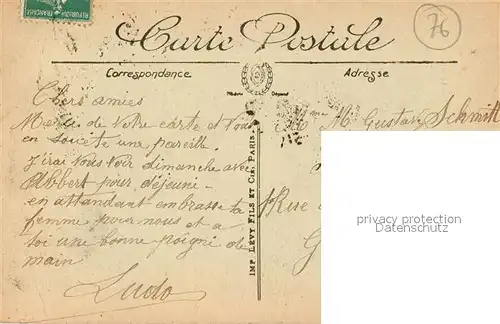 REPUBLIQUE FRANCAISE
76
Carte Postale
Correspondance
Adresse
Chers amies
Merci de Votre carte et Vous
en souéte une pareille.
J'irai Vous Voir dimanche avec
Albert pour déjeuni -
en attendant embrasse ta
femme pour nous et a
toi une bonne poigni de
main
Ludo
IMP. LEVY FILS ET CIE, PARIS.
M. Gustav Schmitt
Rue
privacy protection
Datenschutz